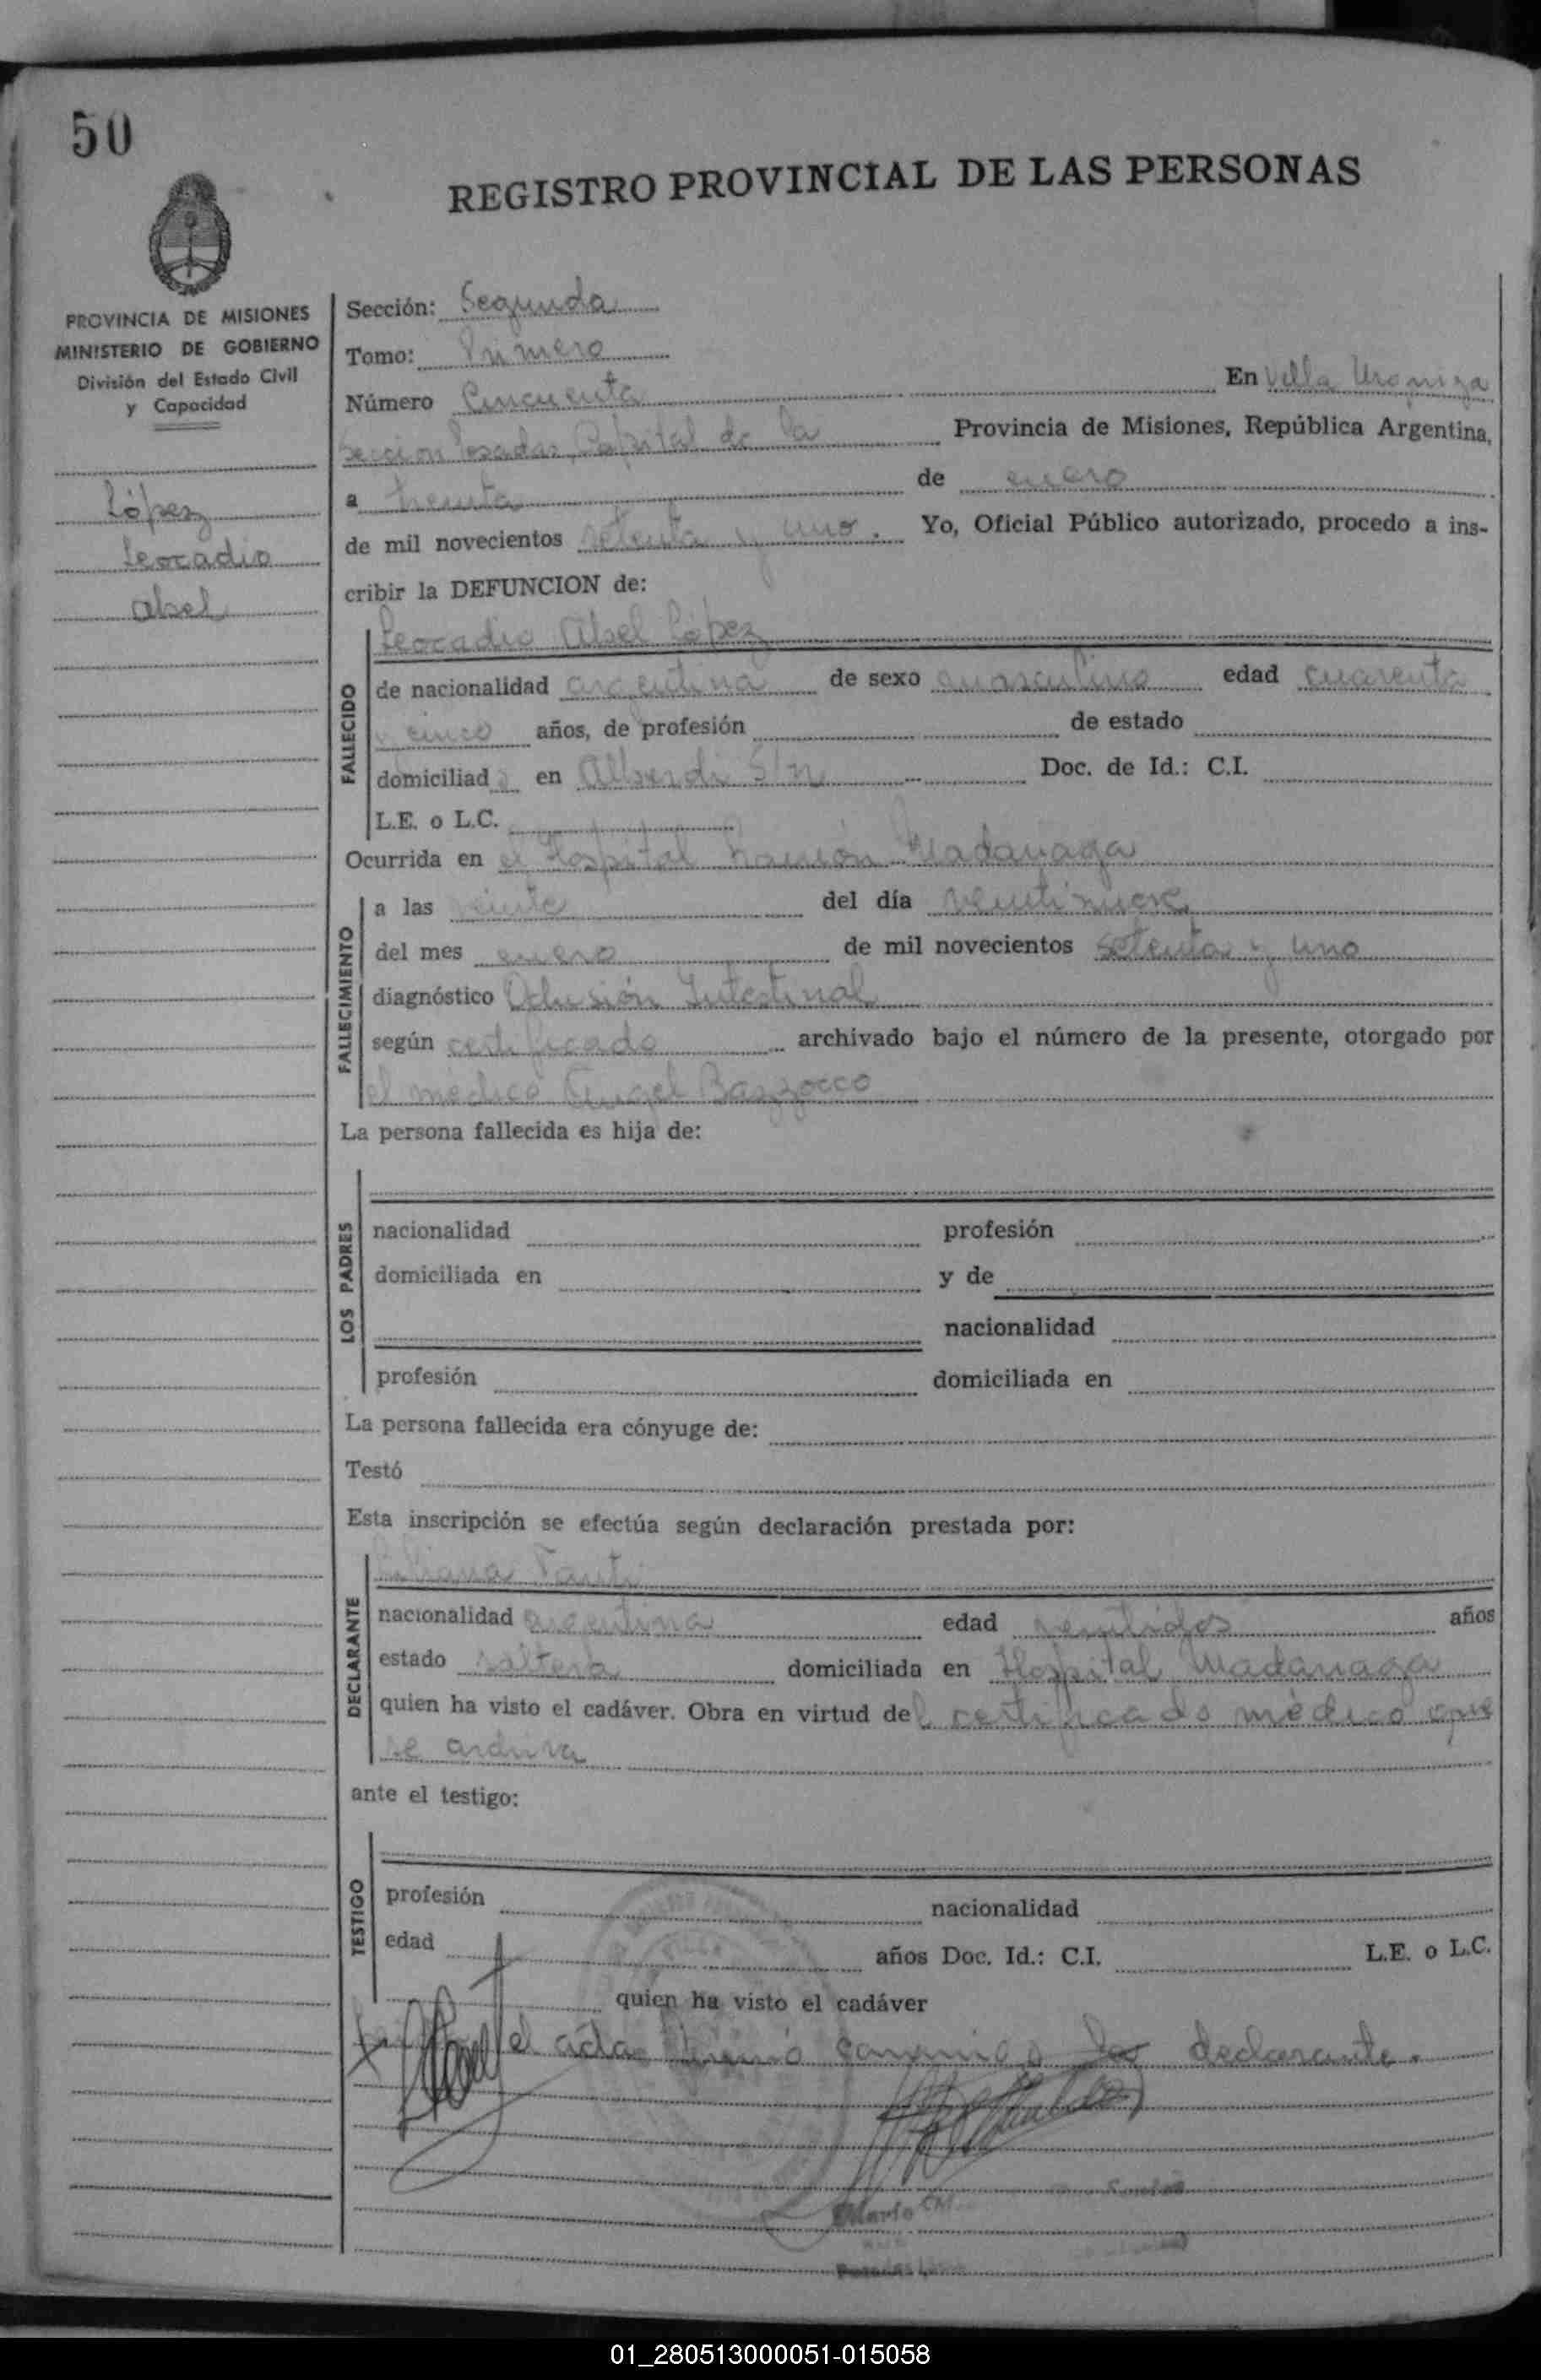 50
REGISTRO PROVINCIAL DE LAS PERSONAS
PROVINCIA DE MISIONES
MINISTERIO DE GOBIERNO
División del Estado Civil
y Capacidad
López
Leocadio
Abel
Sección: Segunda
Tomo: Primero
Número Cincuenta En Villa Urquiza
Sección Posadas, Capital de la Provincia de Misiones, República Argentina,
a treinta de enero
de mil novecientos setenta y uno. Yo, Oficial Público autorizado, procedo a ins-
cribir la DEFUNCION de:
FALLECIDO
Leocadio Abel López
de nacionalidad argentina de sexo masculino edad cuarenta
y cinco años, de profesión de estado
domiciliado en Alberdi S/n Doc. de Id.: C.I.
L.E. o L.C.
Ocurrida en el Hospital Ramón Madariaga
FALLECIMIENTO
a las veinte del día veintinueve
del mes enero de mil novecientos setenta y uno
diagnóstico Oclusión Intestinal
según certificado archivado bajo el número de la presente, otorgado por
el médico Angel Bazzocco
La persona fallecida es hija de:
LOS PADRES
nacionalidad profesión
domiciliada en y de
nacionalidad
profesión domiciliada en
La persona fallecida era cónyuge de:
Testó
Esta inscripción se efectúa según declaración prestada por:
DECLARANTE
nacionalidad argentina edad ventidos años
estado soltera domiciliada en Hospital Madariaga
quien ha visto el cadáver. Obra en virtud del certificado médico que
se archiva
ante el testigo:
TESTIGO
profesión nacionalidad
edad años Doc. Id.: C.I. L.E. o L.C.
quien ha visto el cadáver
el acta firmó conmigo declarante.
Mario
01_280513000051-015058